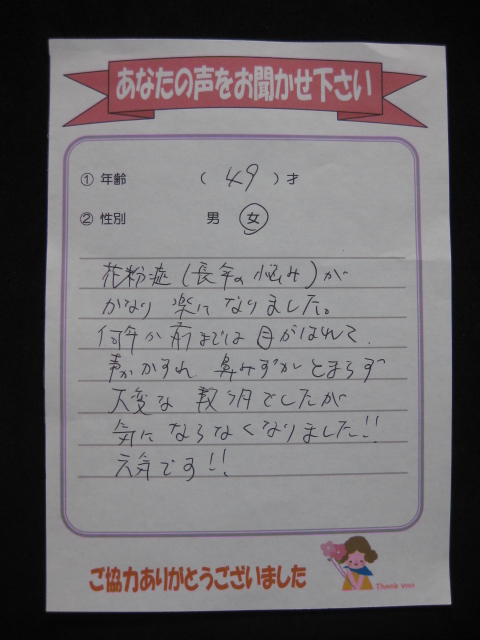 あなたの声をお聞かせ下さい
① 年齢 ( 49 ) 才
② 性別 男 女
花粉症(長年の悩み)が
かなり楽になりました。
何年か前までは目がはれて、
声がかすれ 鼻みずがとまらず
大変な 数ヶ月でしたが
気にならなくなりました!!
元気です!!
ご協力ありがとうございました
Thank you